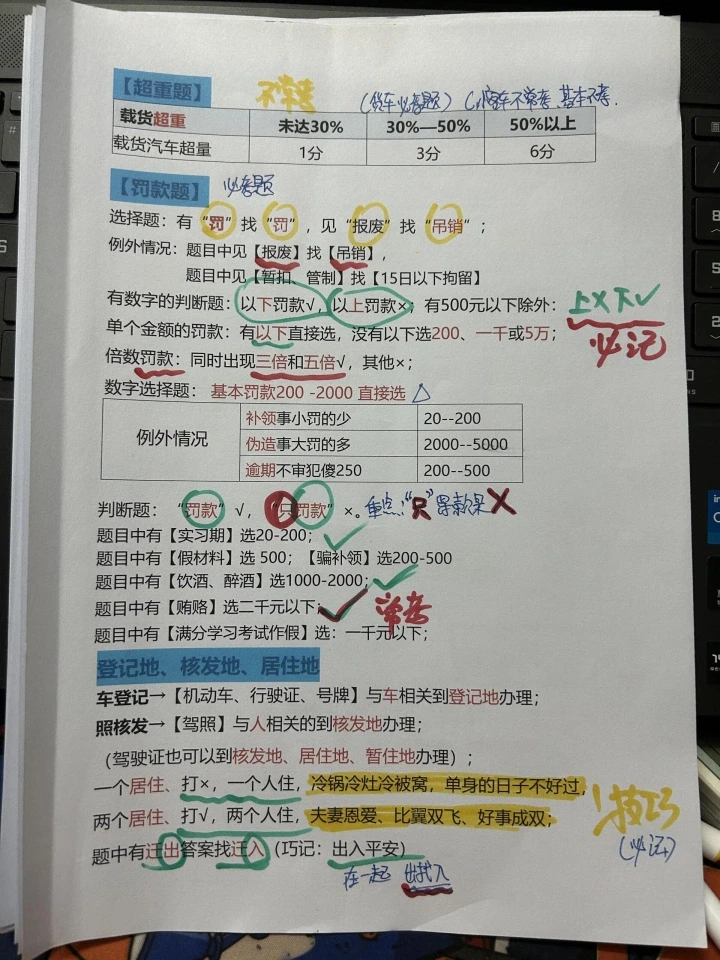 【超重题】 不常考 （货车必考题）
载货超重 未达30% 30%—50% 50%以上
载货汽车超量 1分 3分 6分
【罚款题】 必考题
选择题：有 “罚” 找 “罚”，见 “报废” 找 “吊销”；
例外情况：题目中见【报废】找【吊销】，
题目中见【暂扣、管制】找【15日以下拘留】
有数字的判断题：以下罚款√，以上罚款×；有500元以下除外； 上X下√
单个金额的罚款：有以下直接选，没有以下选200、一千或5万； 必记
倍数罚款：同时出现三倍和五倍√，其他×；
数字选择题： 基本罚款200 -2000 直接选
例外情况
补领事小罚的少 20--200
伪造事大罚的多 2000--5000
逾期不审犯傻250 200--500
判断题： “罚款” √， “只罚款” ×。 重点："只"
题目中有【实习期】选20-200；
题目中有【假材料】选 500；【骗补领】选200-500
题目中有【饮酒、醉酒】选1000-2000；
题目中有【贿赂】选二千元以下； 常考
题目中有【满分学习考试作假】选：一千元以下；
登记地、核发地、居住地
车登记→【机动车、行驶证、号牌】与车相关到登记地办理；
照核发→【驾照】与人相关的到核发地办理；
（驾驶证也可以到核发地、居住地、暂住地办理）；
一个居住、打×，一个人住，冷锅冷灶冷被窝，单身的日子不好过，
两个居住、打√，两个人住，夫妻恩爱、比翼双飞、好事成双； 技巧
（必记）
题中有迁出答案找迁入（巧记：出入平安）
在一起 出找入